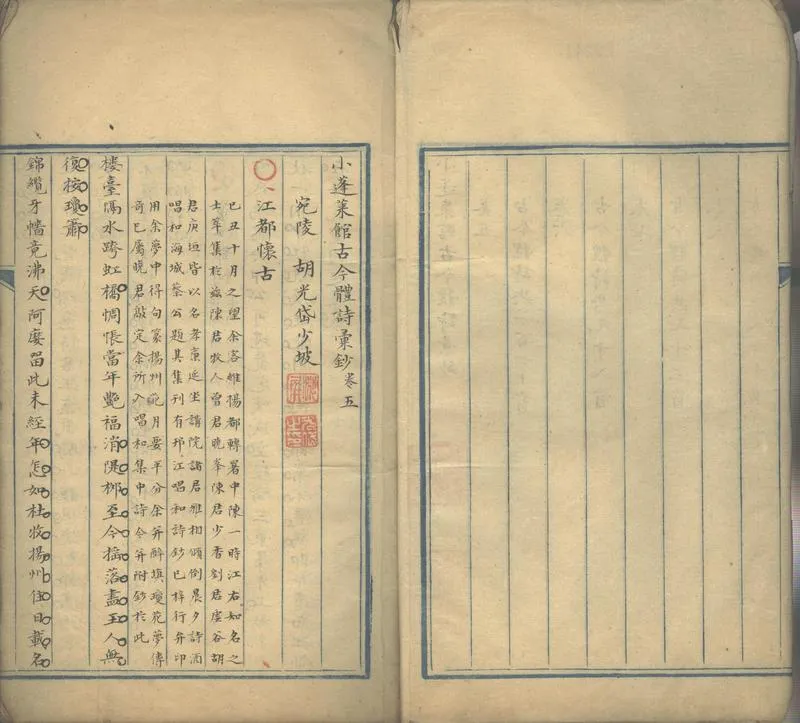 小蓬萊館古今體詩彙鈔卷五
宛陵 胡光岱少坡
江都懷古
己丑十月之望余客維揚都轉署中陳一時江右知名之
士萃集於茲陳君牧人曾君曉峯陳君少香劉君虛谷胡
君庚垣皆以名孝廉延坐講院諸君雅相傾倒晨夕詩酒
唱和海城蔡公題其集刊有邗江唱和詩鈔已梓行弁印
用余夢中得句裏揚州破月要平分余并醉填瓊花夢傳
奇已屬曉君敲定余所入唱和集中詩今并附鈔於此
樓臺隔水跨虹橋惆悵當年艷福消隄柳至今搖落盡玉人無
復按瓊簫
錦纜牙檣竟沸天阿㜷留此未經年怎如杜牧揚州住日載名